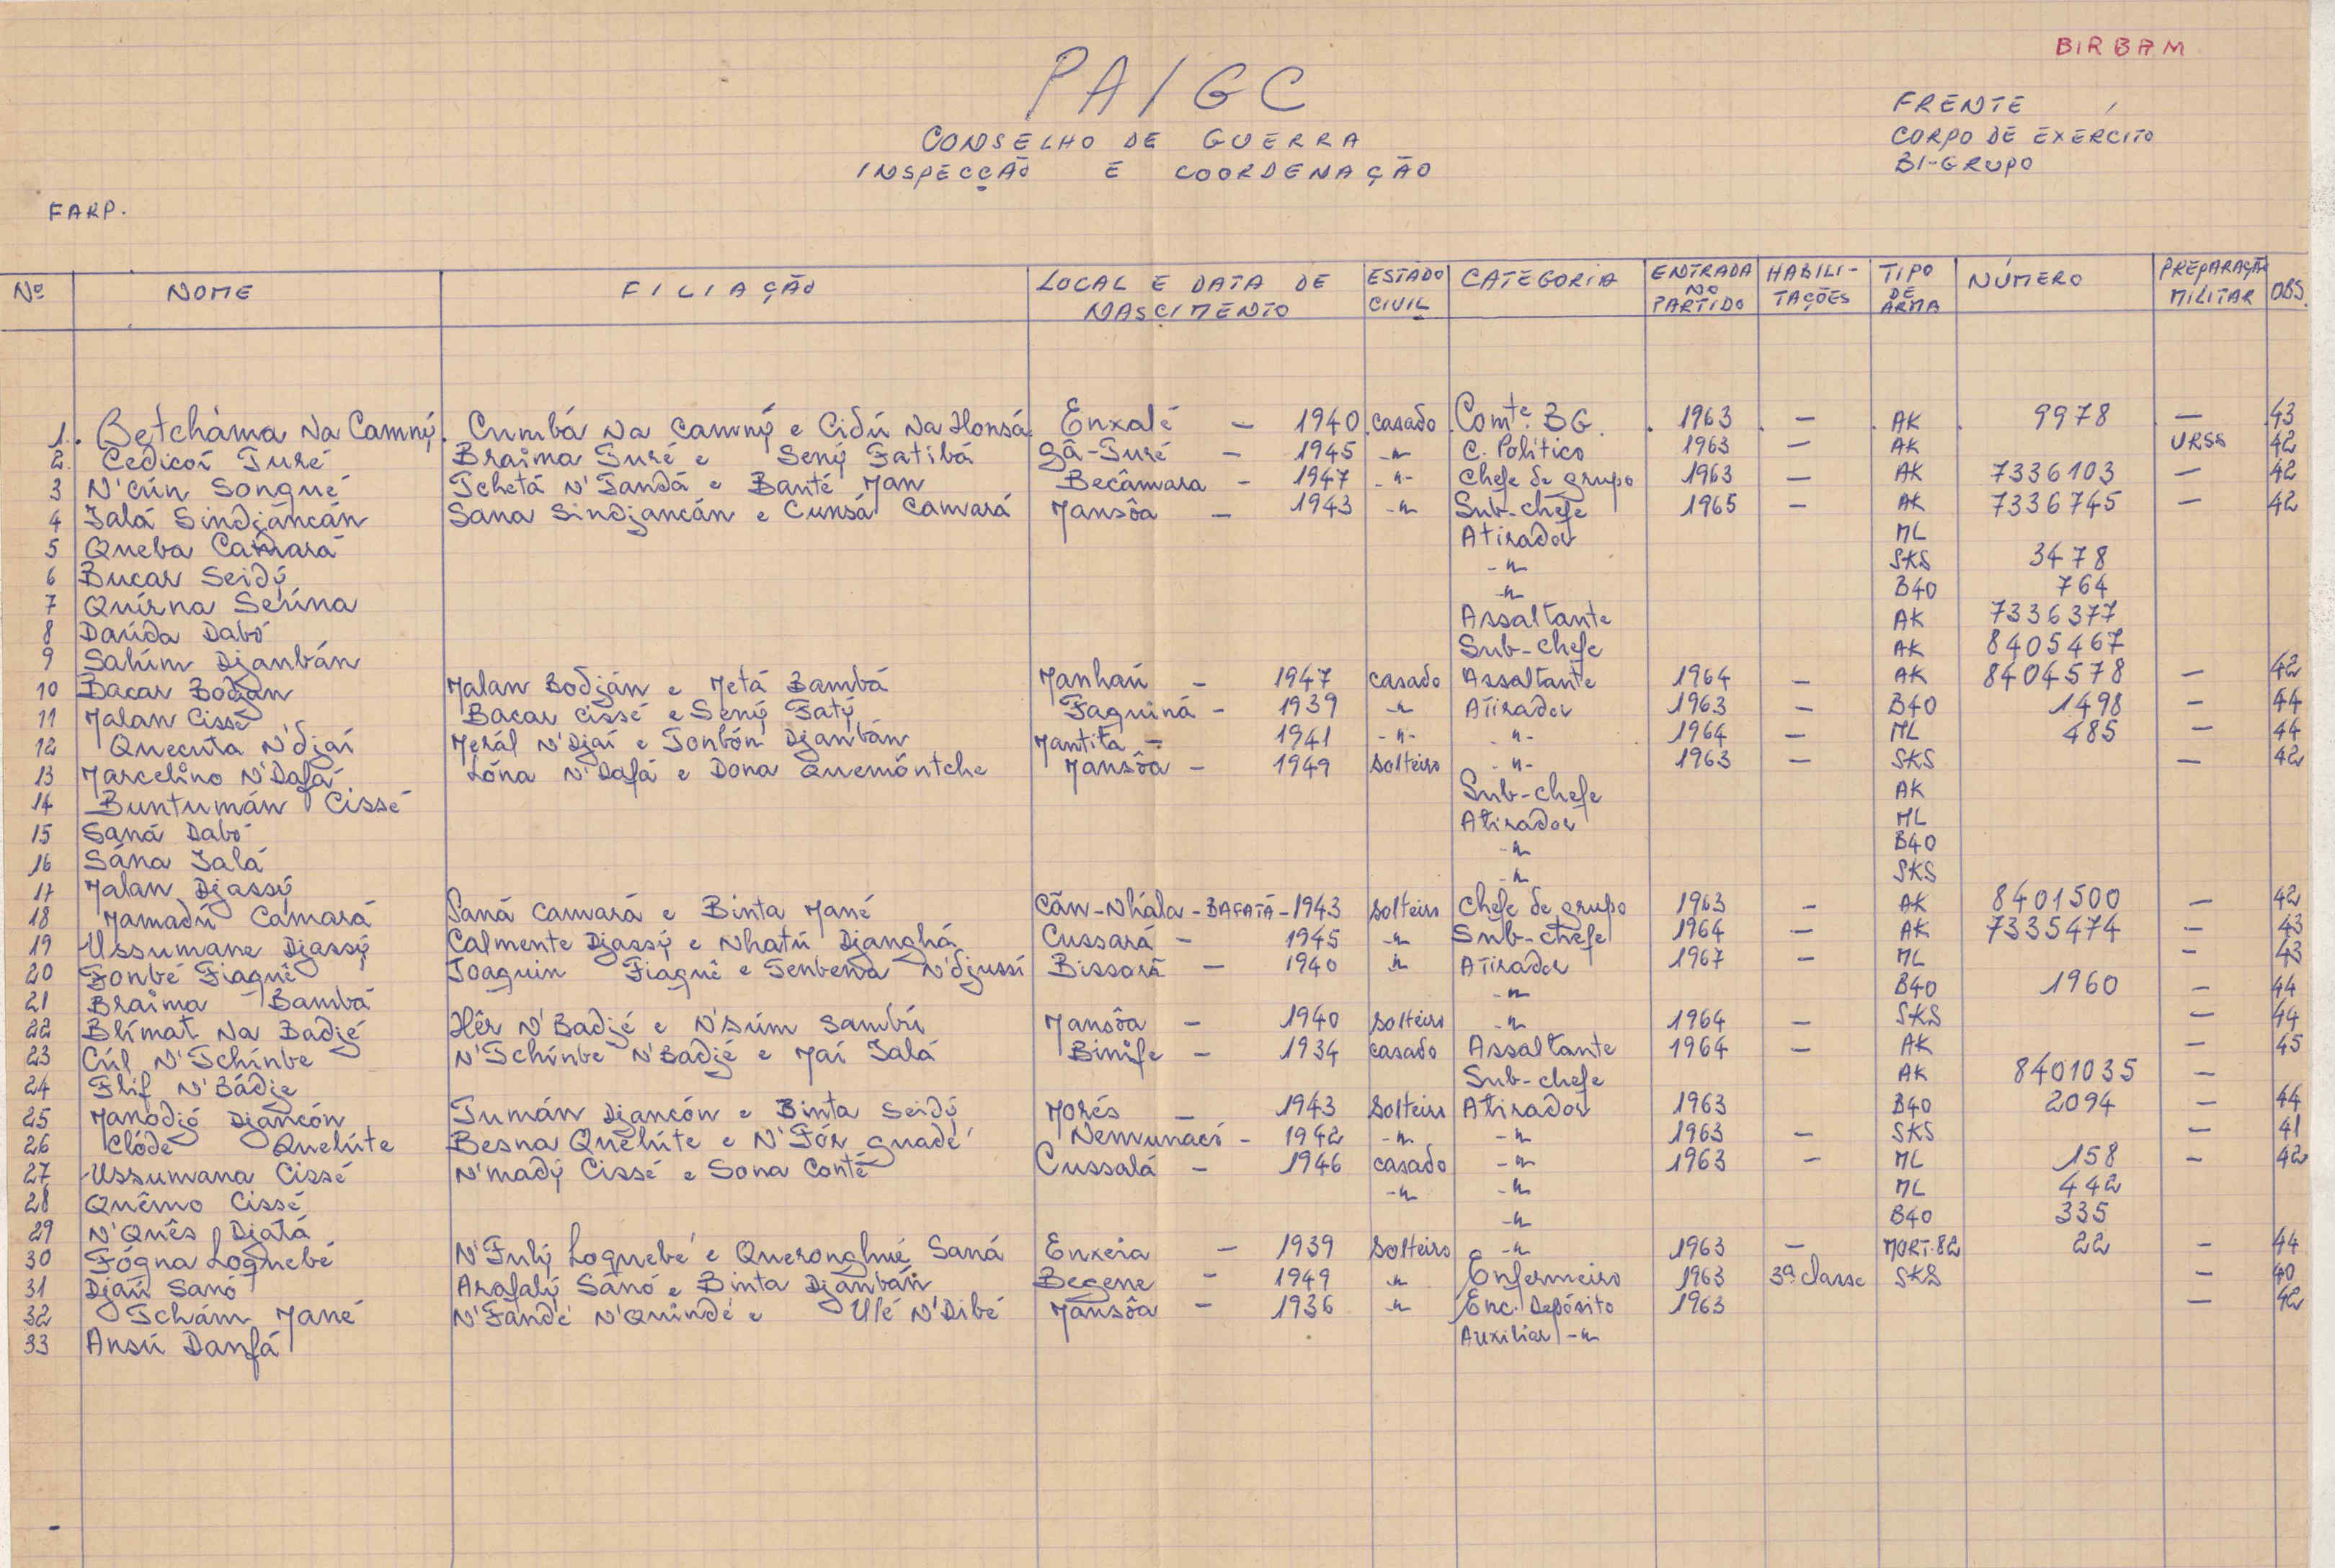 BIRBAM
PAIGC
CONSELHO DE GUERRA
INSPECÇÃO E COORDENAÇÃO
FRENTE
CORPO DE EXÉRCITO
BI-GRUPO
FARP.
Nº NOME FILIAÇÃO LOCAL E DATA DE NASCIMENTO ESTADO CIVIL CATEGORIA ENTRADA NO PARTIDO HABILITAÇÕES TIPO DE ARMA NÚMERO PREPARAÇÃO MILITAR OBS.
1. Betcháma Na Camný. Cumbá Na Camný e Cidú Na Honsá Enxalé - 1940 casado Comte. BG. 1963 - AK 9978 - 43
2. Cedicoí Turé Braima Turé e Sený Fatibá Gã-Turé - 1945 -"- C. Político 1963 - AK URSS 42
3 N'cún Songué Tchetá N'Tandá e Banté Man Becâmara - 1947 -"- Chefe de grupo 1963 - AK 7336103 - 42
4 Ialá Sindjáncán Sana Sindjancán e Cunsá Camará Mansôa - 1943 -"- Sub-chefe 1965 - AK 7336745 - 42
5 Queba Camará Atirador ML
6 Bucar Seidý -"- SKS 3478
7 Quírna Seúna -"- B40 764
8 Daúda Dabó Assaltante AK 7336377
9 Sahím Djanbán Sub-chefe AK 8405467
10 Bacar Bodjan Malan Bodján e Metá Bambá Manhaú - 1947 casado Assaltante 1964 - AK 8404578 - 42
11 Malan Cissé Bacar Cissé e Sený Fatý Faquiná - 1939 -"- Atirador 1963 - B40 1498 - 44
12 Quecuta N'djaí Merál N'Djaí e Tonbón Djanbán Mantita - 1941 -"- -"- 1964 - ML 485 - 44
13 Marcelino N'Dafá Lóna N'Dafá e Dona Quemóntche Mansôa - 1949 solteiro -"- 1963 - SKS - 42
14 Buntumán Cissé Sub-chefe AK
15 Saná Dabó Atirador ML
16 Sána Ialá -"- B40
17 Malan Djassý -"- SKS
18 Mamadú Camará Saná Camará e Binta Mané Cãn-Nhála-BAFATÁ-1943 solteiro Chefe de grupo 1963 - AK 8401500 - 42
19 Ussumane Djassý Calmente Djassý e Nhatú Djanghá Cussará - 1945 -"- Sub-chefe 1964 - AK 7335474 - 43
20 Fonbé Fiaguê Joaquin Fiaguê e Tenbena N'djussí Bissorã - 1940 -"- Atirador 1967 - ML - 43
21 Braima Bambá -"- B40 1960 - 44
22 Blímat Na Badjé Hêr N'Badjé e N'súm Sambú Mansôa - 1940 solteiro -"- 1964 - SKS - 44
23 Cúl N'Tchínbe N'Tchínbe N'Badjé e Maí Ialá Binife - 1934 casado Assaltante 1964 - AK - 45
24 Flif N'Bádje Sub-chefe AK 8401035 -
25 Manodjó Djancón Tumán Djancón e Binta Seidý Morés - 1943 solteiro Atirador 1963 B40 2094 - 44
26 Clóde Quelúte Besna Quelúte e N'Fór guadé Nemunacó - 1942 -"- -"- 1963 - SKS - 41
27 Ussumana Cissé N'madý Cissé e Sona Conté Cussalá - 1946 casado -"- 1963 - ML 158 - 42
28 Quêmo Cissé -"- -"- ML 442
29 N'Quês Djatá -"- B40 335
30 Fógna Loquebé N'Fulý Loquebé e Queronghué Saná Enxeia - 1939 solteiro -"- 1963 - MORT.82 22 - 44
31 Djaú Sanó Arafalý Sanó e Binta Djánbán Begene - 1949 -"- Enfermeiro 1963 3ª classe SKS - 40
32 Tchám Mané N'Fandé N'Quindé e Ulé N'Dibé Mansôa - 1936 -"- Enc. Depósito 1963 - 42
33 Ansú Danfá Auxiliar -"-